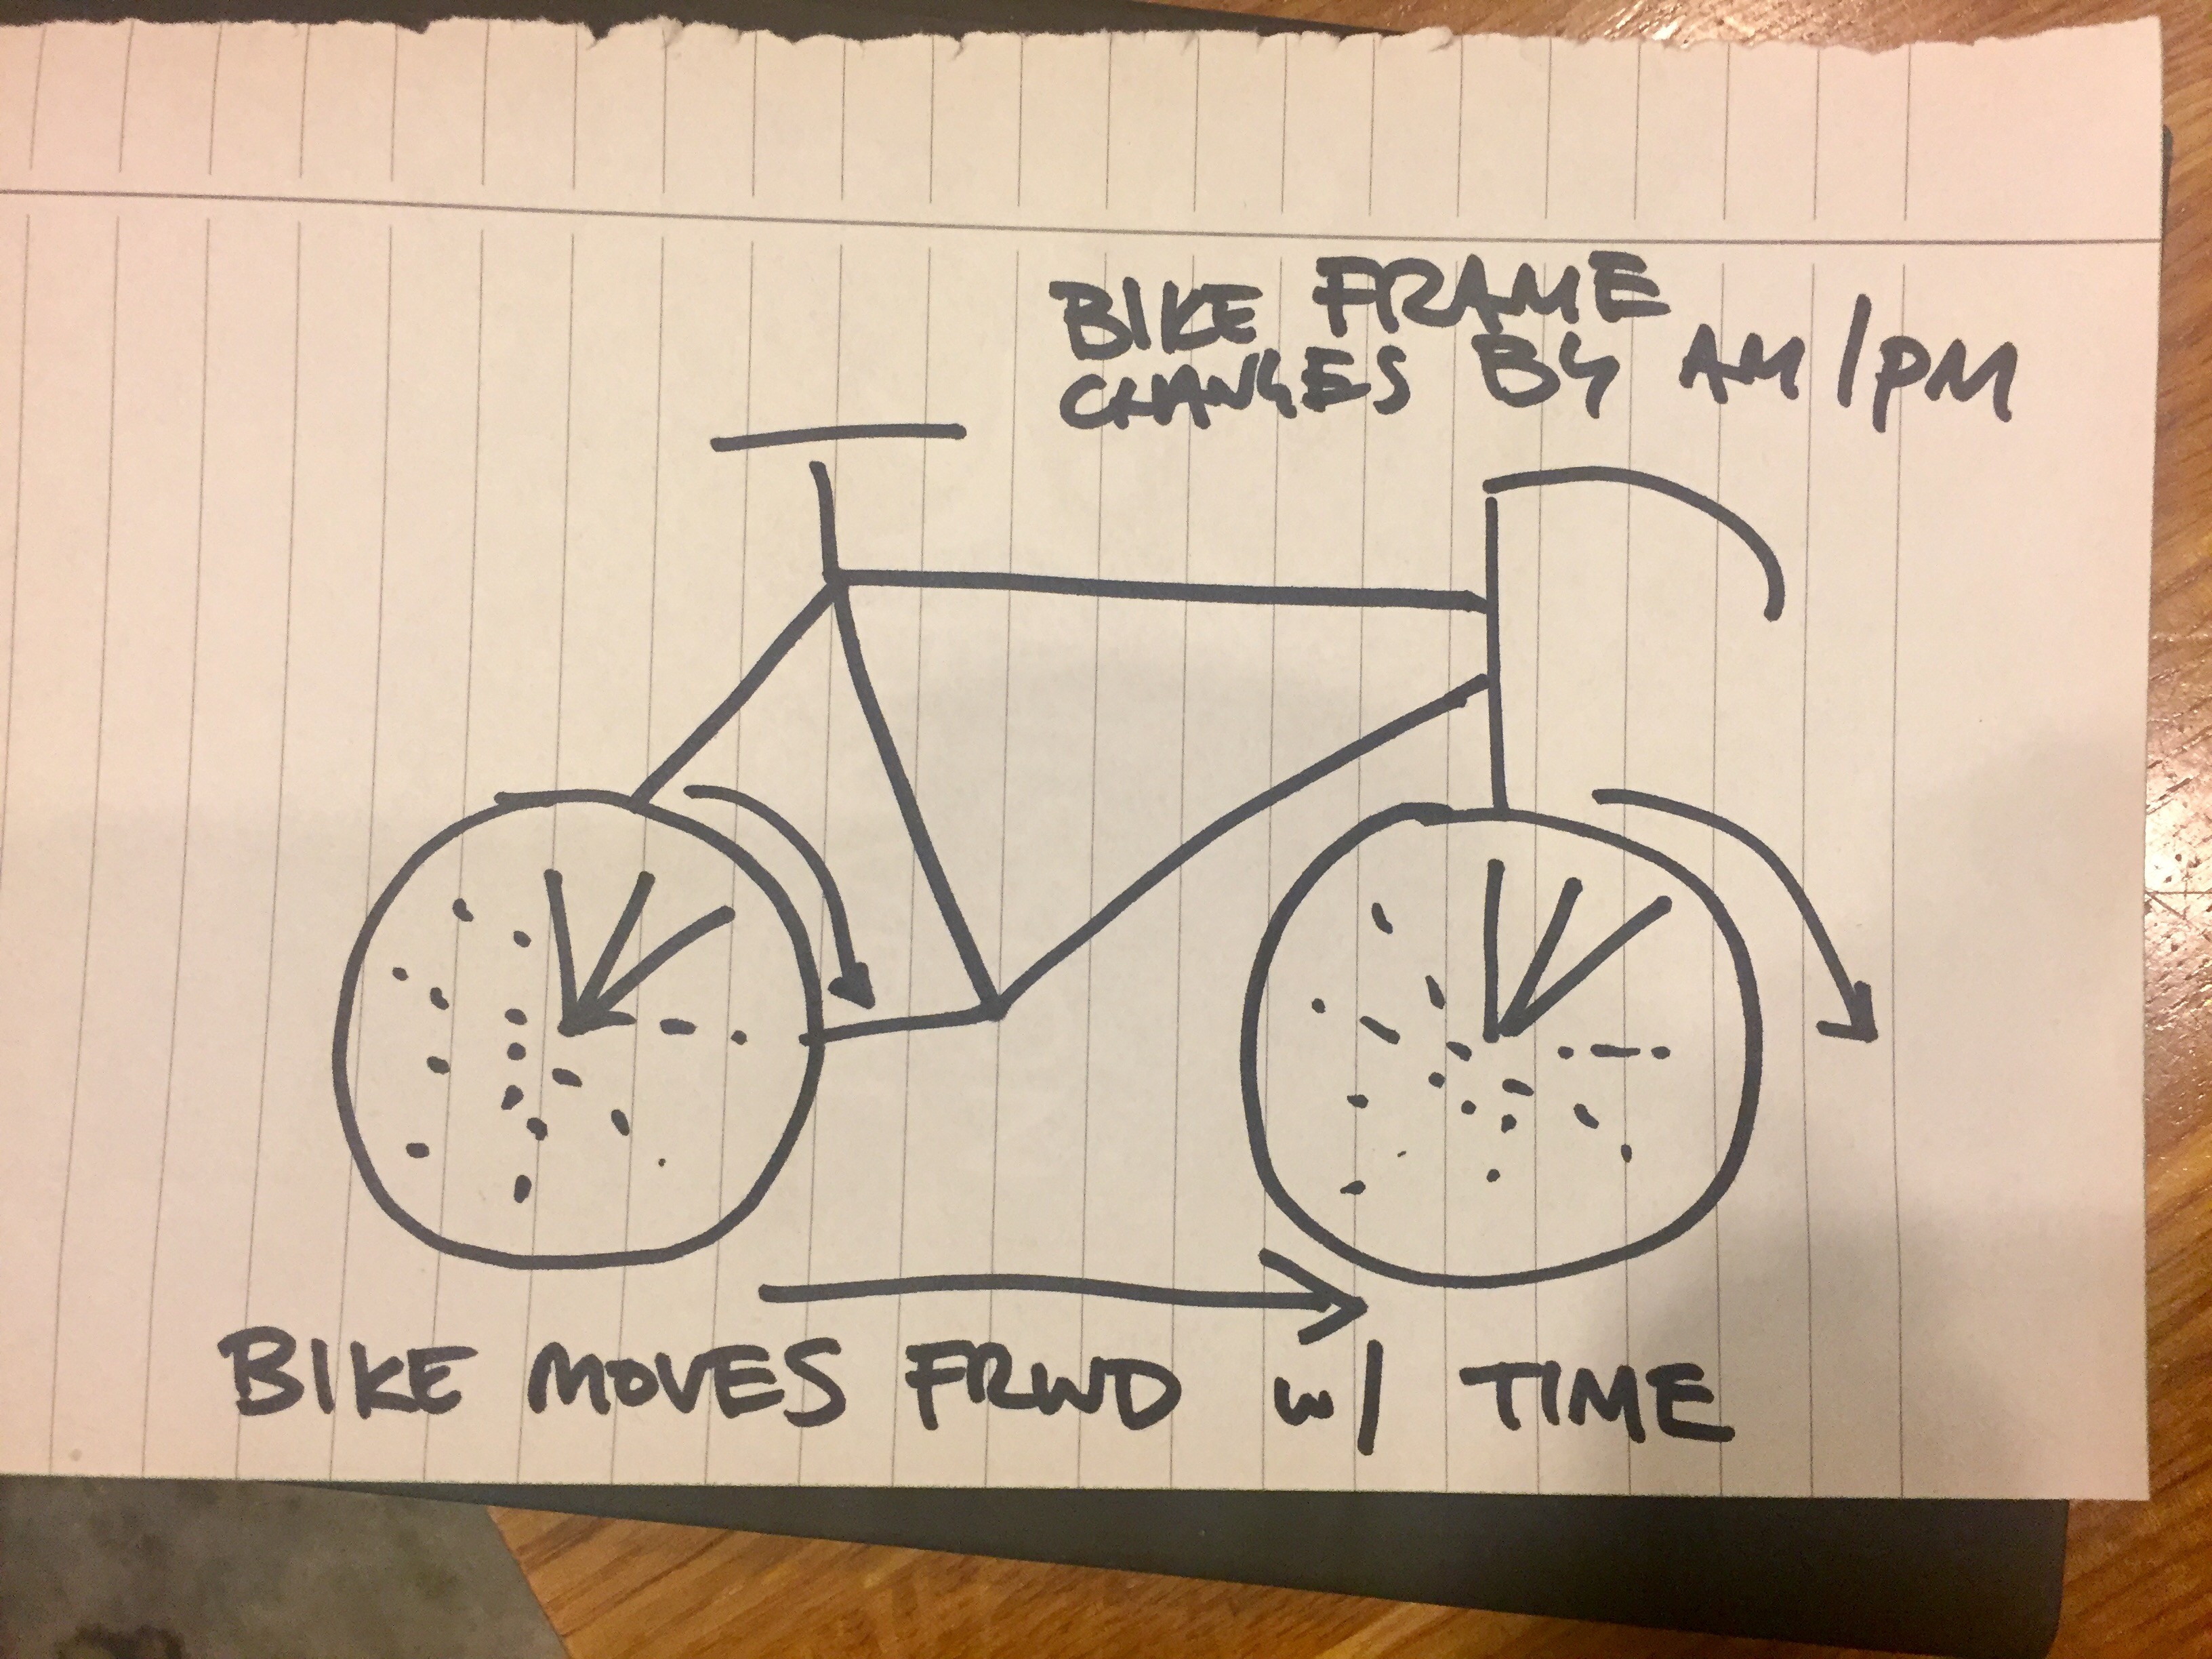 BIKE FRAME
CHANGES BY AM/PM
BIKE MOVES FRWD w/ TIME